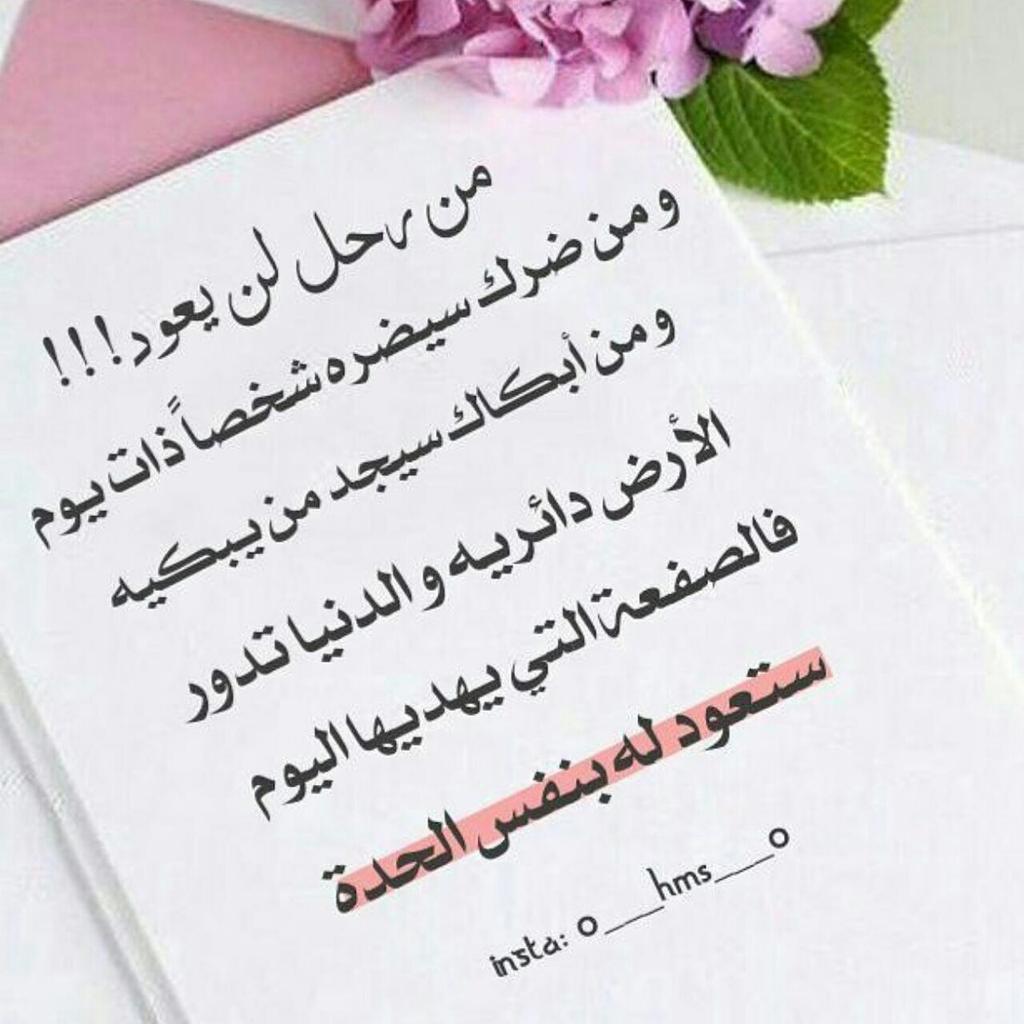 من رحل لن يعود!!!
و من ضرك سيضره شخصاً ذات يوم
و من أبكاك سيجد من يبكيه
الأرض دائريه و الدنيا تدور
فالصفعة التي يهديها اليوم
ستعود له بنفس الحدة
insta: o___hms___o